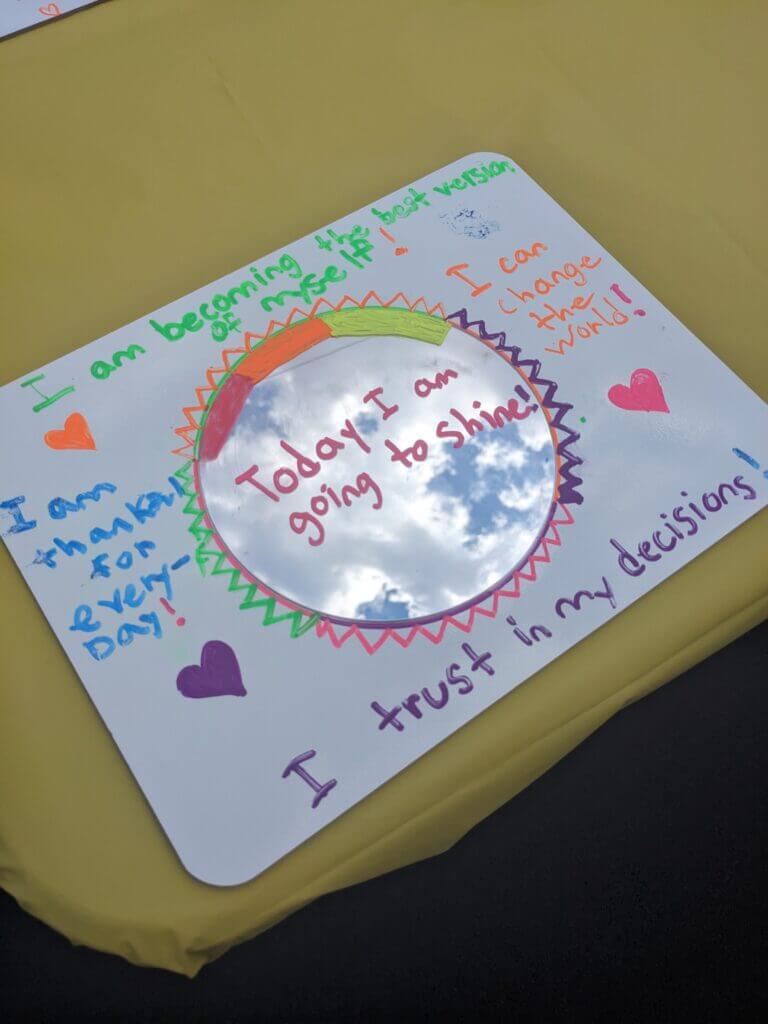 I am becoming the best version
of myself!
I can
change
the
world!
Today I am
going to shine!
I am
thankful
for
every-
Day!
I trust in my decisions!